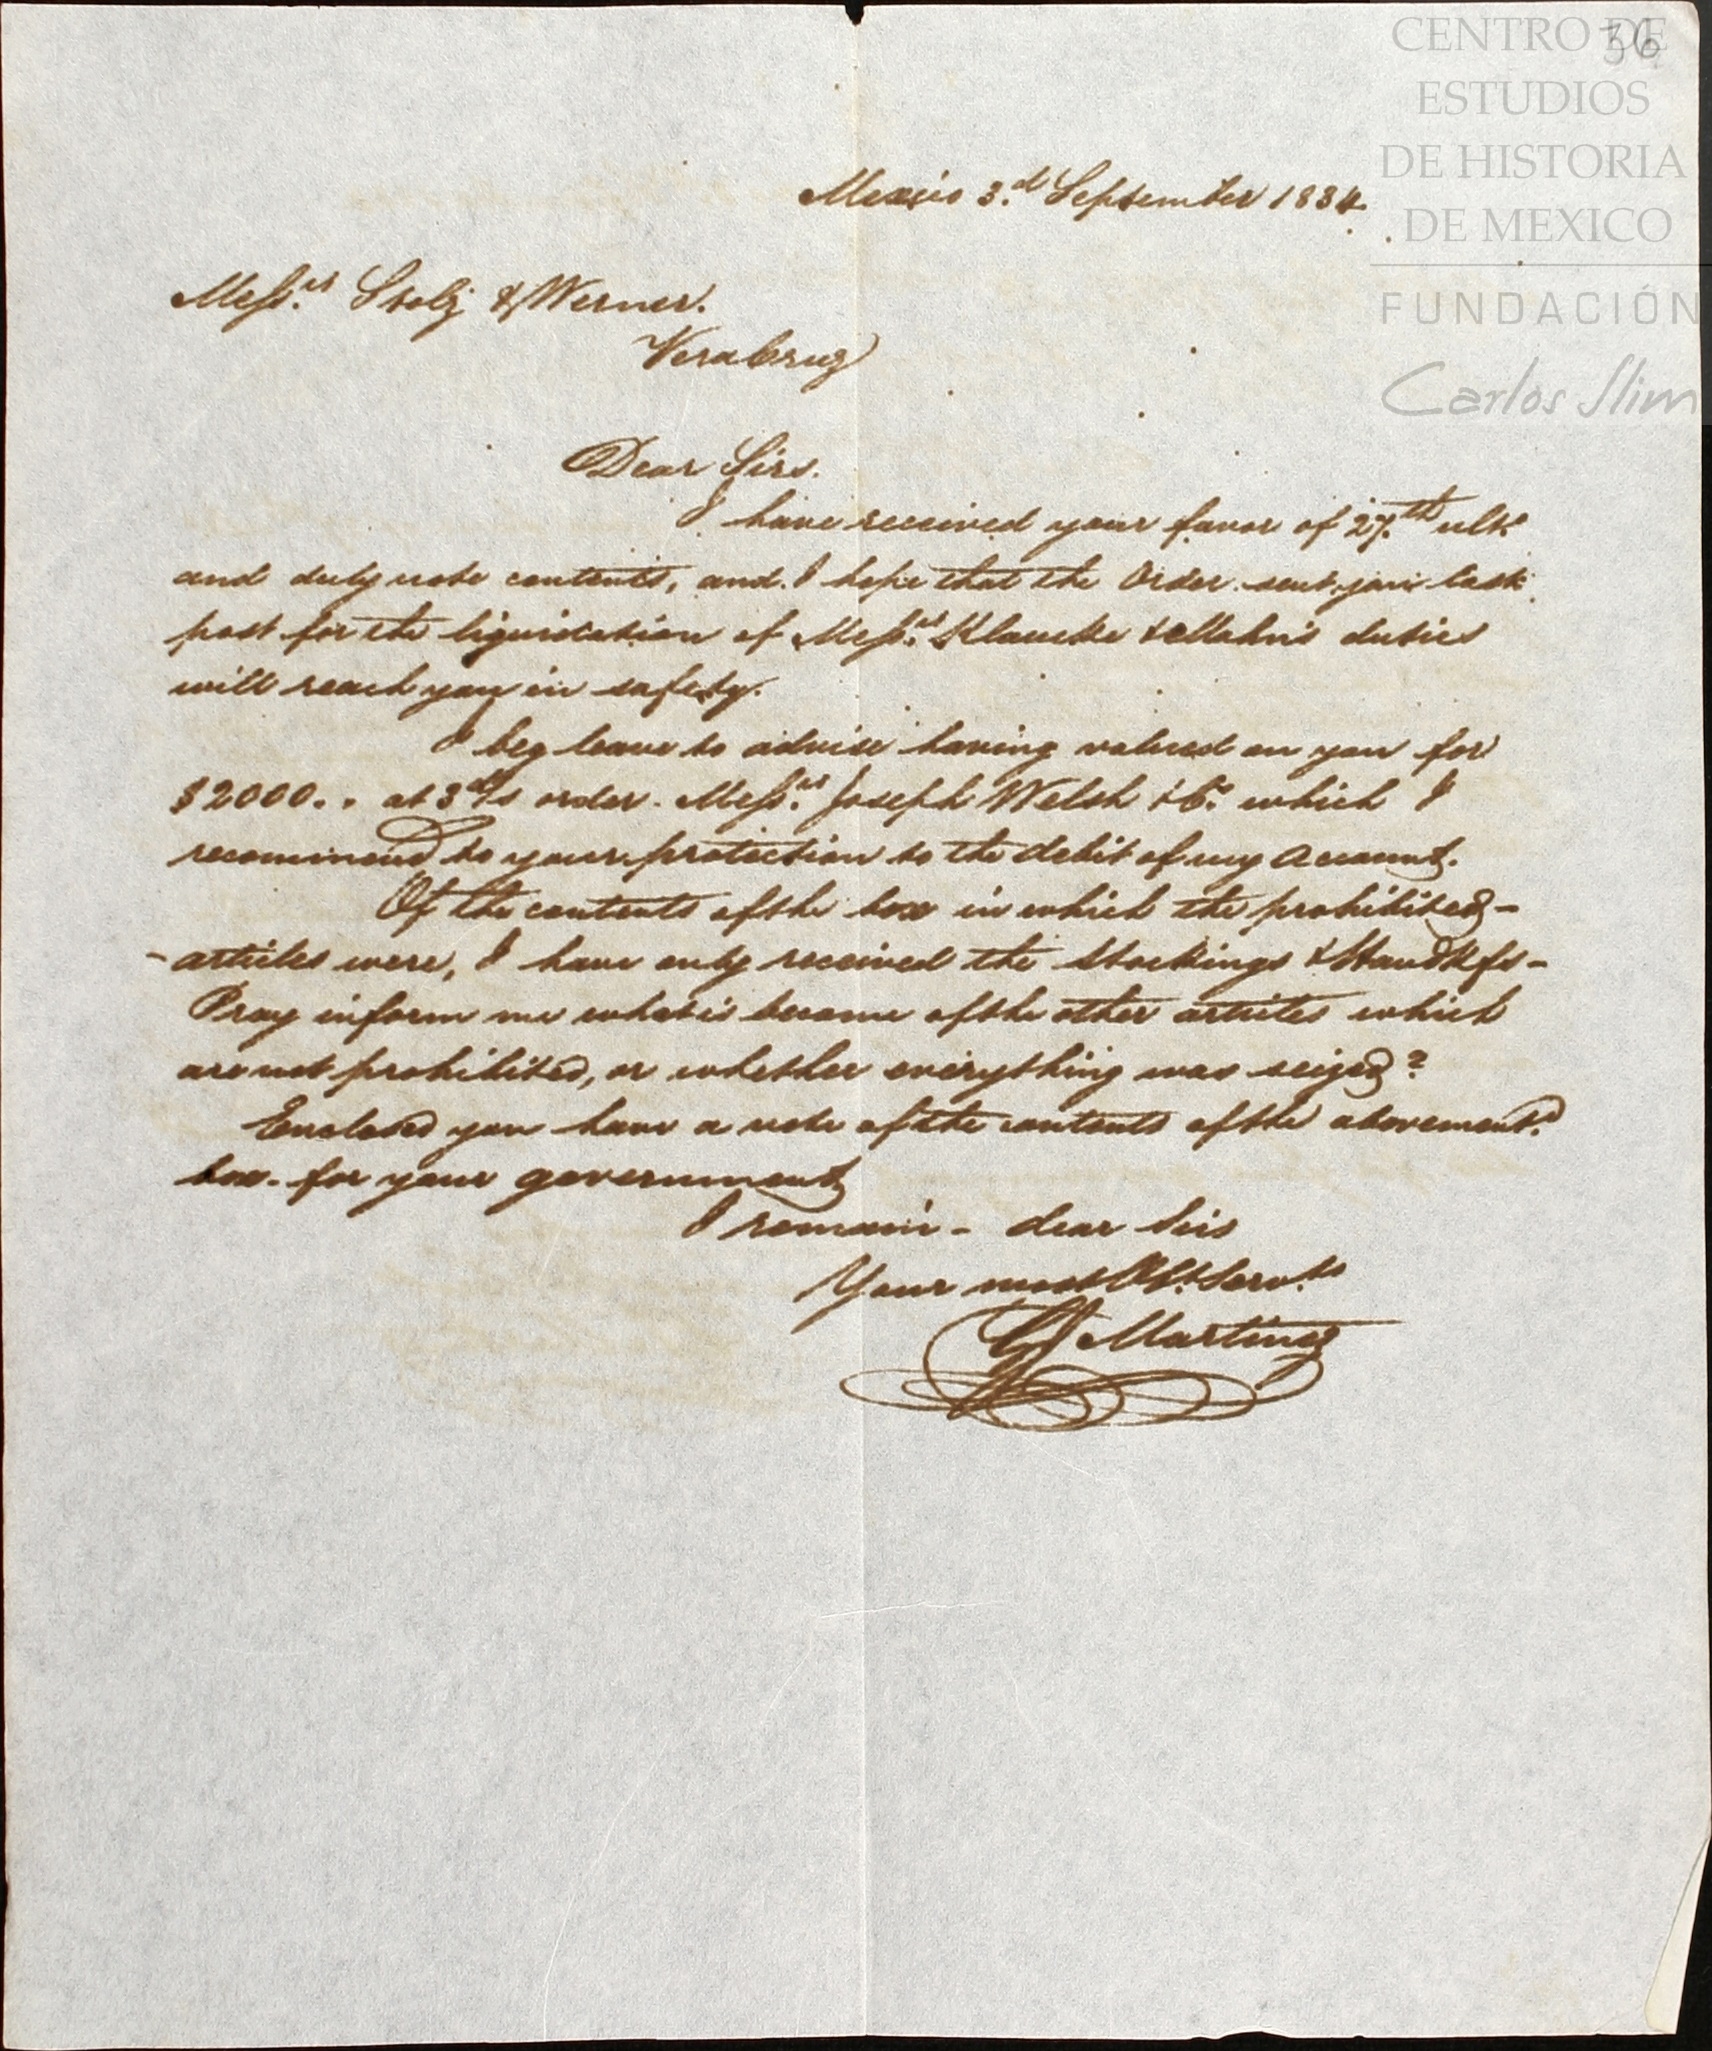 36
CENTRO DE
ESTUDIOS
DE HISTORIA
DE MEXICO
FUNDACIÓN
Carlos Slim
Mexico 3.d September 1834.
Mess.rs Stolz & Werner.
Vera Cruz
Dear Sirs.
I have received your favor of 27.th ult.o
and duly note contents, and I hope that the Order sent last
post for the liquidation of Mess.rs Klaucke & Mahn's duties
will reach you in safety.
I beg leave to advise having valued on you for
$2000.. at 3 d/s order Mess.rs Joseph Welsh & Co. which I
recommend to your protection to the debit of my Account.
Of the contents of the box in which the prohibited-
-articles were, I have only received the Stockings & Handkfs-
Pray inform me what is become of the other articles which
are not prohibited, or whether everything was seized?
Enclosed you have a note of the contents of the abovement.d
box for your government
I remain - dear Sirs
Your most Ob.t Serv.t
Martinez